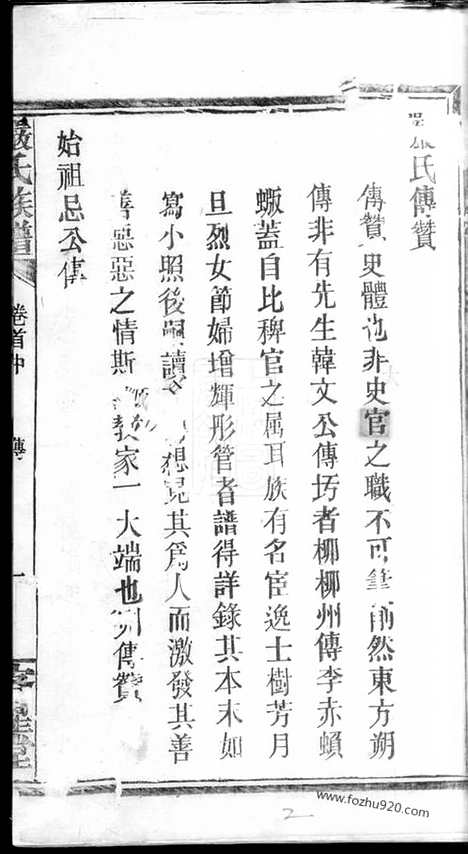 嚴氏傳贊
傳贊史體也非史官之職不可筆削然東方朔
傳非有先生韓文公傳圬者柳柳州傳李赤蝜
蝂蓋自比稗官之属耳族有名宦逸士樹芳月
旦烈女節婦增輝彤管者譜得詳錄其本末如
寫小照後嗣讀 想見其爲人而激發其善
善惡惡之情斯 教家一大端也列傳贊
始祖忌公傳
嚴氏族譜
卷首中
傳
一
www.fozhu920.com
2